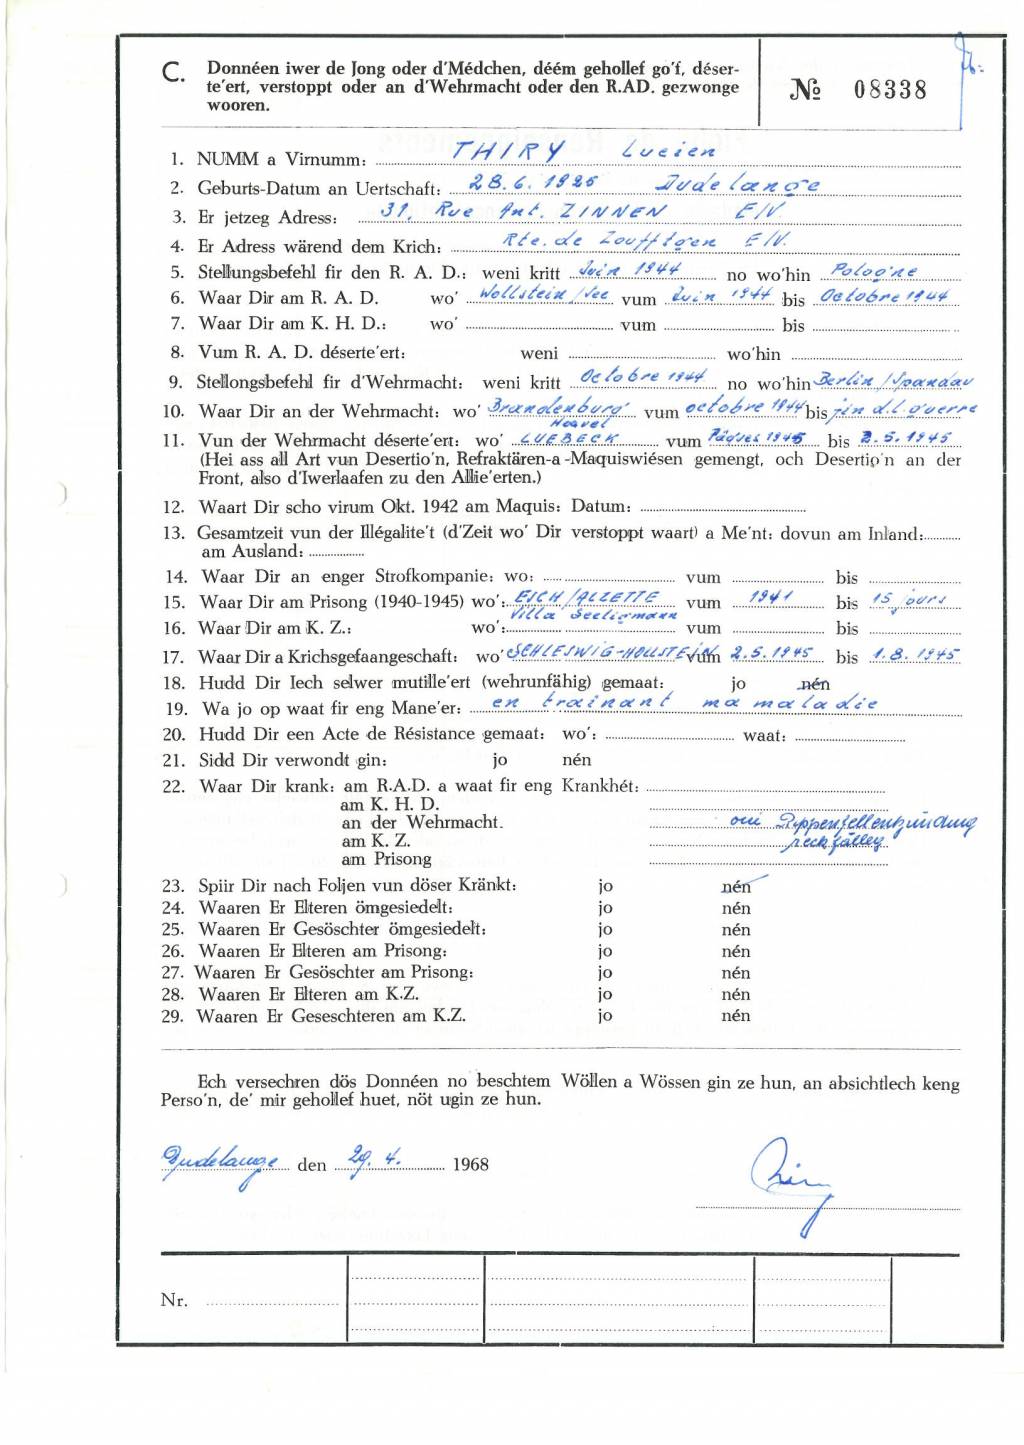 C. Donnéen iwer de Jong oder d'Médchen, déém gehollef go'f, déser-
te'ert, verstoppt oder an d'Wehrmacht oder den R.AD. gezwonge
wooren.
№ 08338
1. NUMM a Virnumm: THIRY Lucien
2. Geburts-Datum an Uertschaft: 28.6.1925 Dudelange
3. Er jetzeg Adress: 31, Rue Ant. ZINNEN E/V.
4. Er Adress wärend dem Krich: Rte. de Zoufftgen E/V.
5. Stellungsbefehl fir den R. A. D.: weni kritt Juin 1944 no wo'hin Pologne
6. Waar Dir am R. A. D. wo' Wollstein/See vum Juin 1944 bis Octobre 1944
7. Waar Dir am K. H. D.: wo' vum bis
8. Vum R. A. D. déserte'ert: weni wo'hin
9. Stellongsbefehl fir d'Wehrmacht: weni kritt Octobre 1944 no wo'hin Berlin/Spandau
10. Waar Dir an der Wehrmacht: wo' Brandenburg vum octobre 1944 bis fin d.l. guerre
Havel
11. Vun der Wehrmacht déserte'ert: wo' LUEBECK vum 1945 bis 2.5.1945
(Hei ass all Art vun Desertio'n, Refraktären-a -Maquiswiésen gemengt, och Desertio'n an der
Front, also d'Iwerlaafen zu den Allie'erten.)
12. Waart Dir scho virum Okt. 1942 am Maquis: Datum:
13. Gesamtzeit vun der Illégalite't (d'Zeit wo' Dir verstoppt waart) a Me'nt: dovun am Inland:
am Ausland:
14. Waar Dir an enger Strofkompanie: wo: vum bis
15. Waar Dir am Prisong (1940-1945) wo': ESCH/ALZETTE vum 1941 bis 15 jours
Villa Seeligmann
16. Waar Dir am K. Z.: wo': vum bis
17. Waar Dir a Krichsgefaangeschaft: wo' SCHLESWIG-HOLLSTEIN vum 2.5.1945 bis 1.8.1945
18. Hudd Dir Iech selwer mutille'ert (wehrunfähig) gemaat: jo nén
19. Wa jo op waat fir eng Mane'er: en trainant ma maladie
20. Hudd Dir een Acte de Résistance gemaat: wo': waat:
21. Sidd Dir verwondt gin: jo nén
22. Waar Dir krank: am R.A.D. a waat fir eng Krankhét:
am K. H. D.
an der Wehrmacht. oui Rippenfellentzündung
am K. Z. reckfälleg
am Prisong
23. Spiir Dir nach Foljen vun döser Kränkt: jo nén
24. Waaren Er Elteren ömgesiedelt: jo nén
25. Waaren Er Gesöschter ömgesiedelt: jo nén
26. Waaren Er Elteren am Prisong: jo nén
27. Waaren Er Gesöschter am Prisong: jo nén
28. Waaren Er Elteren am K.Z. jo nén
29. Waaren Er Geseschteren am K.Z. jo nén
Ech versechren dös Donnéen no beschtem Wöllen a Wössen gin ze hun, an absichtlech keng
Perso'n, de' mir gehollef huet, nöt ugin ze hun.
Dudelange den 29. 4. 1968
Nr.